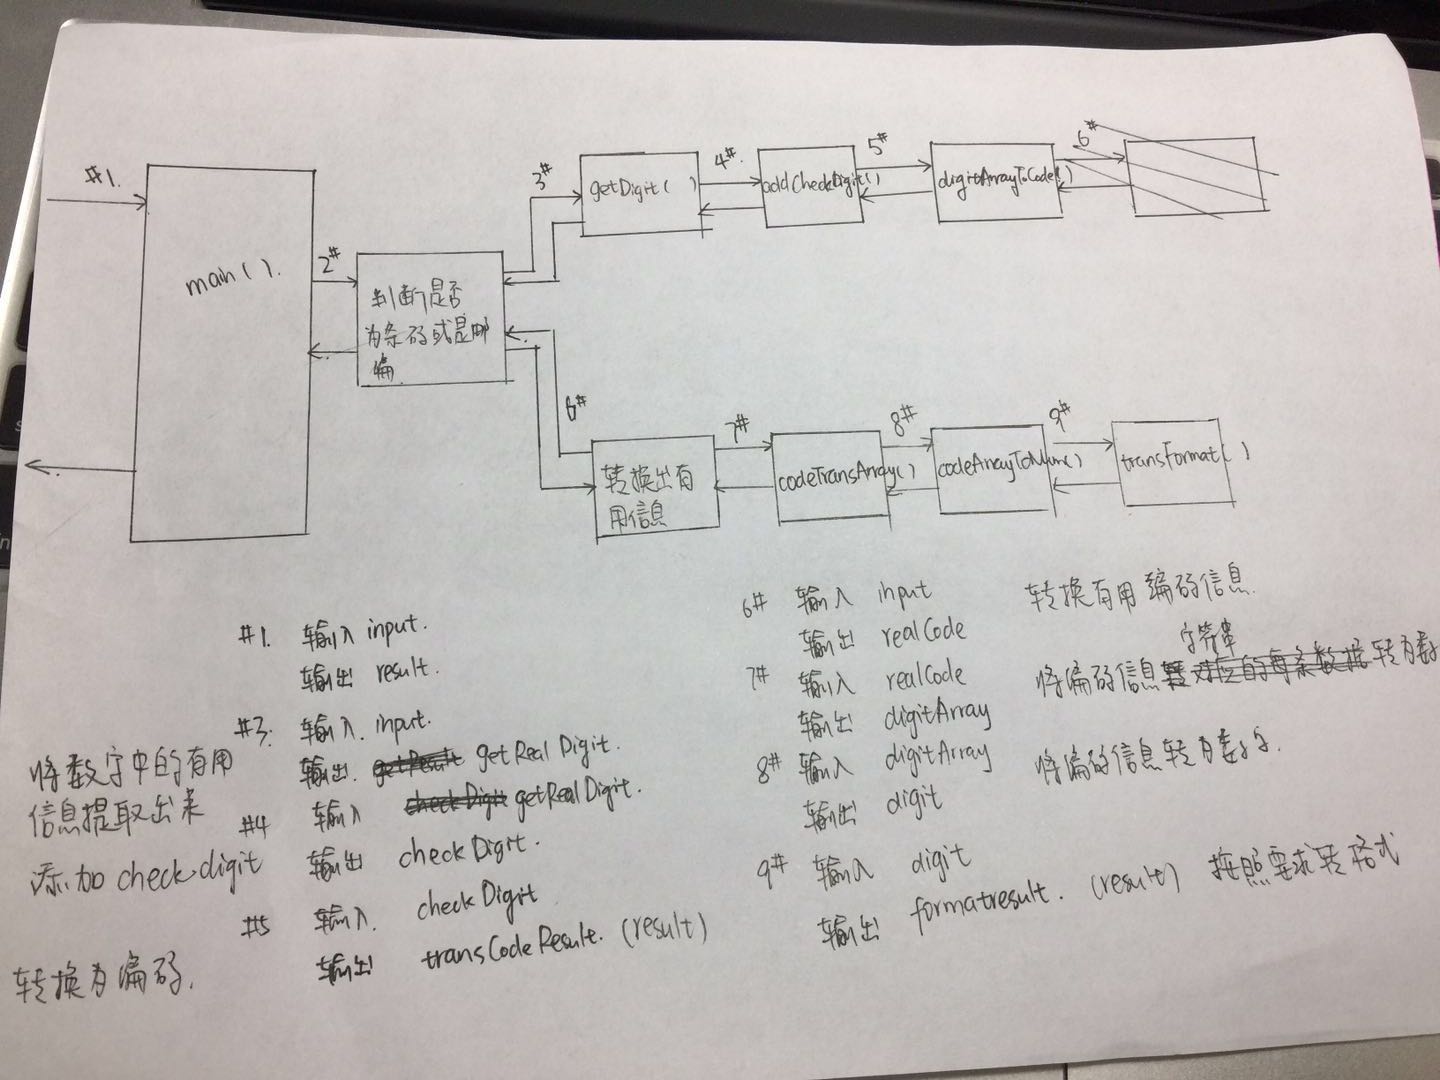 #1.
main( ).
2#
判断是否
为条码或是邮
编
3#
getDigit( )
4#.
addCheckDigit( )
5#
digitArrayToCode( )
6#
6#
转换出有
用信息
7#
codeTransArray( )
8#
codeArrayToNum( )
9#
transFormat( )
#1. 输入 input.
输出 result.
#3. 输入. input.
将数字中的有用
信息提取出来
输出. getResult getRealDigit.
#4 输入 checkDigit getRealDigit.
添加 check digit
输出 checkDigit.
#5 输入. checkDigit
输出 transCodeResult. (result)
转换为编码.
6# 输入 input 转换有用编码信息.
输出 realCode
字符串
7# 输入 realCode 将编码信息对应的每条数据转为数
输出 digitArray
8# 输入 digitArray 将编码信息转为数字.
输出 digit
9# 输入 digit
输出 formatresult. (result) 按照要求转格式